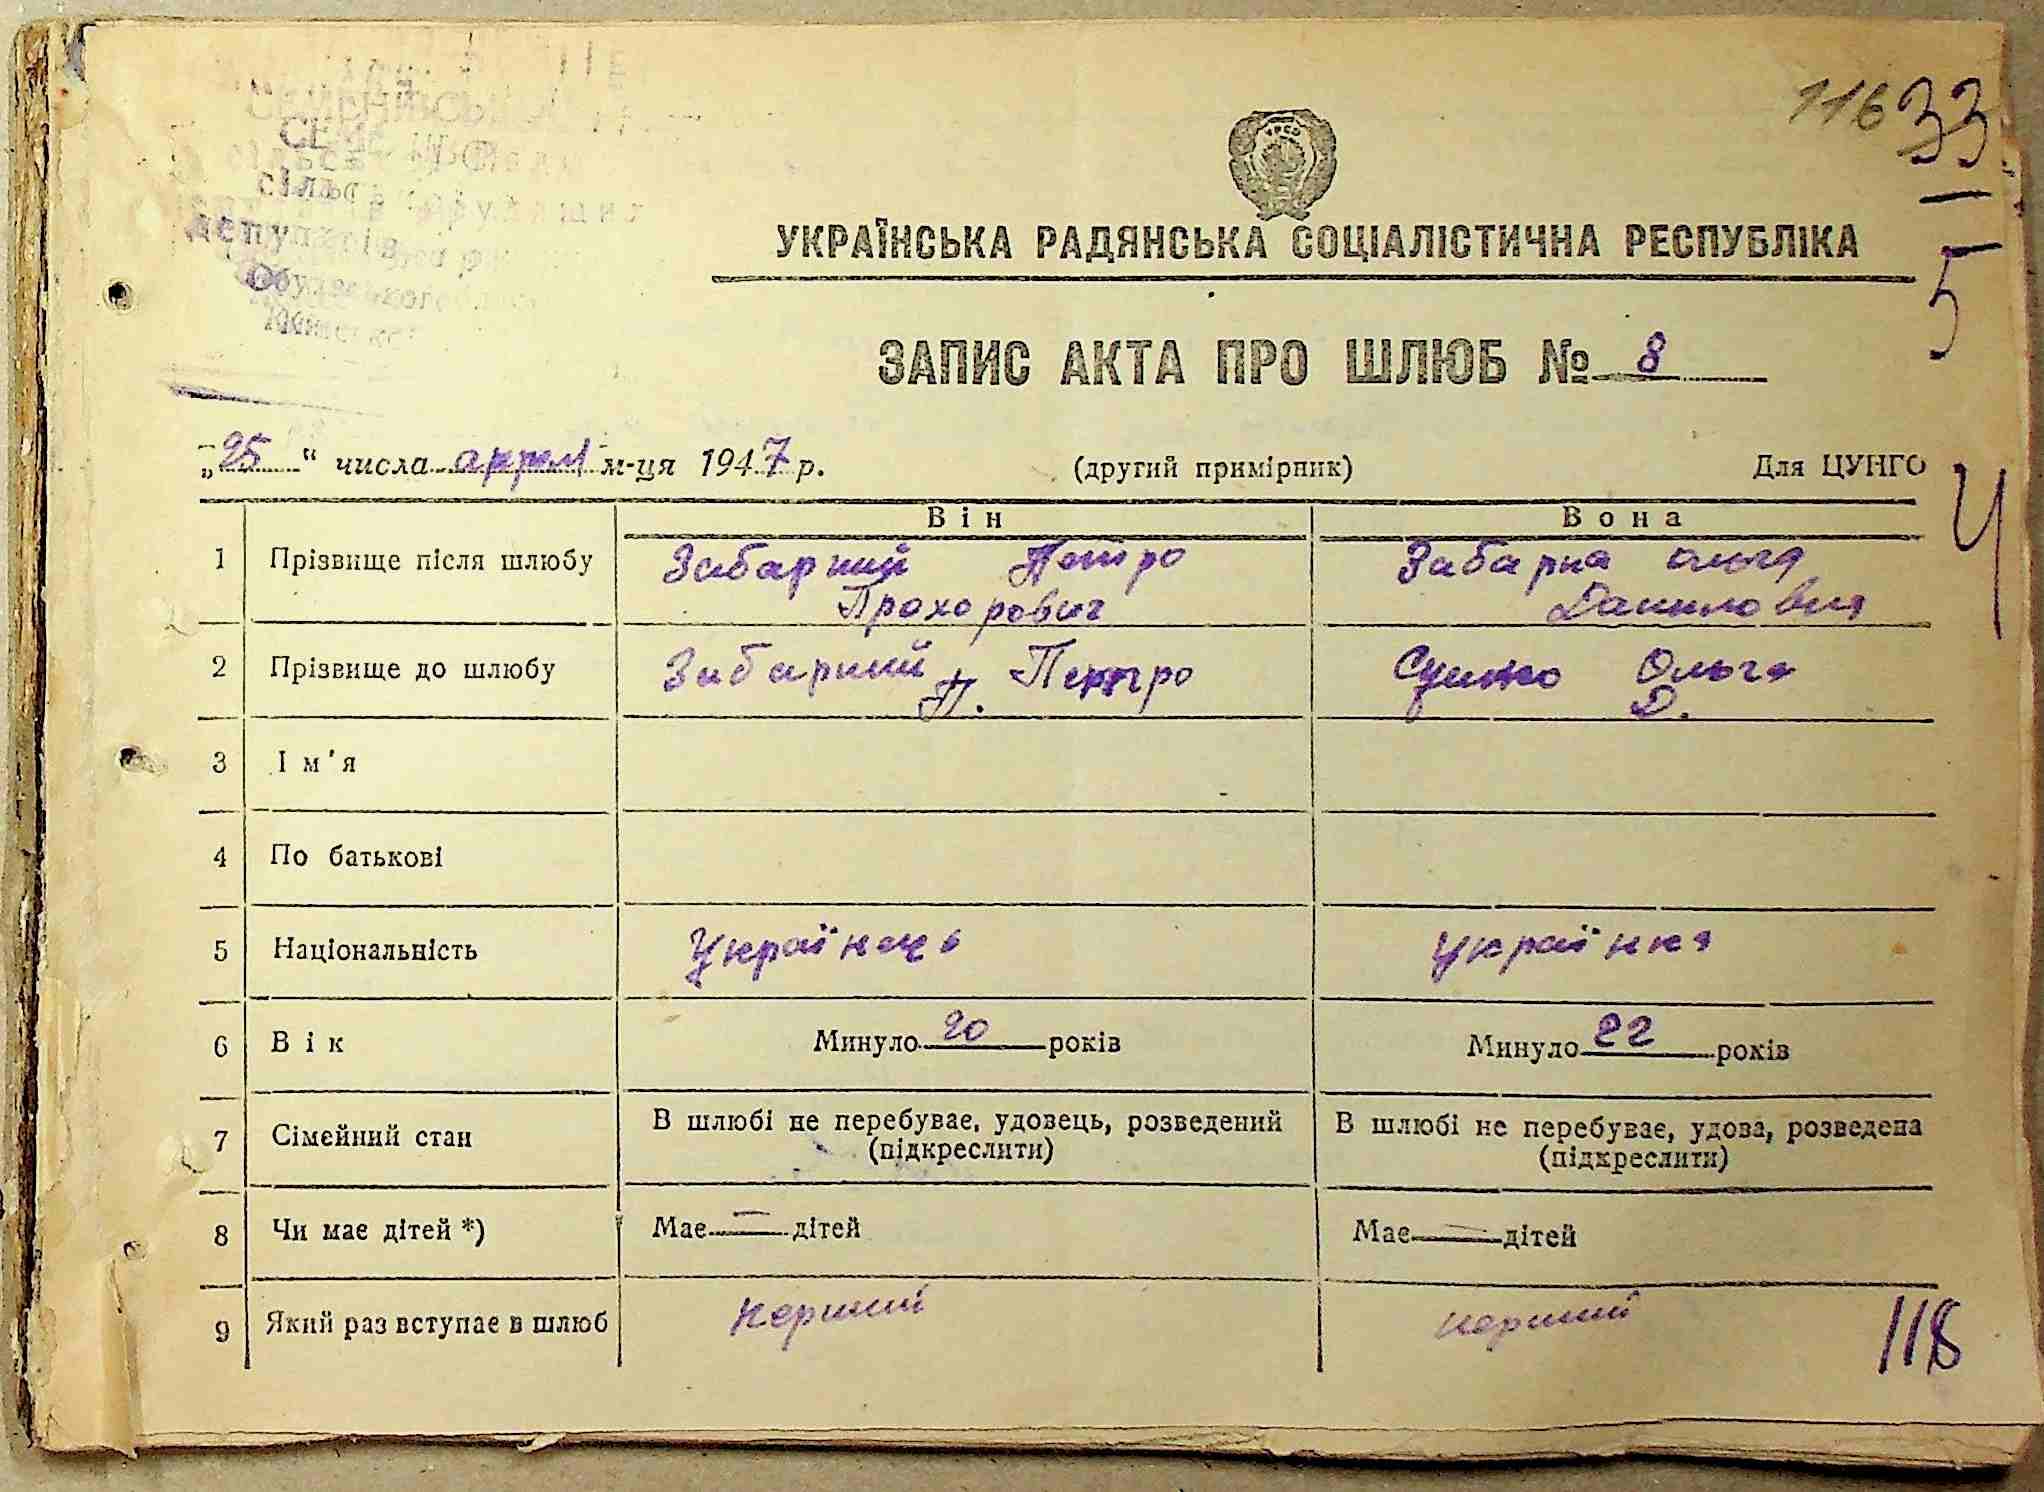 116 33
5
Ч
УРСР
УКРАЇНСЬКА РАДЯНСЬКА СОЦІАЛІСТИЧНА РЕСПУБЛІКА
ЗАПИС АКТА ПРО ШЛЮБ № 8
„25“ числа апреля м-ця 1947 р. (другий примірник) Для ЦУНГО
Він Вона
1 Прізвище після шлюбу Забарний Петро Забарна Ольга
Прохорович Даниловна
2 Прізвище до шлюбу Забарний Петро Ольга
П. Д.
3 Ім'я
4 По батькові
5 Національність Українець Українка
6 Вік Минуло 20 років Минуло 22 років
7 Сімейний стан В шлюбі не перебуває, удовець, розведений В шлюбі не перебуває, удова, розведена
(підкреслити) (підкреслити)
8 Чи має дітей *) Має — дітей Має — дітей
9 Який раз вступає в шлюб перший перший
118